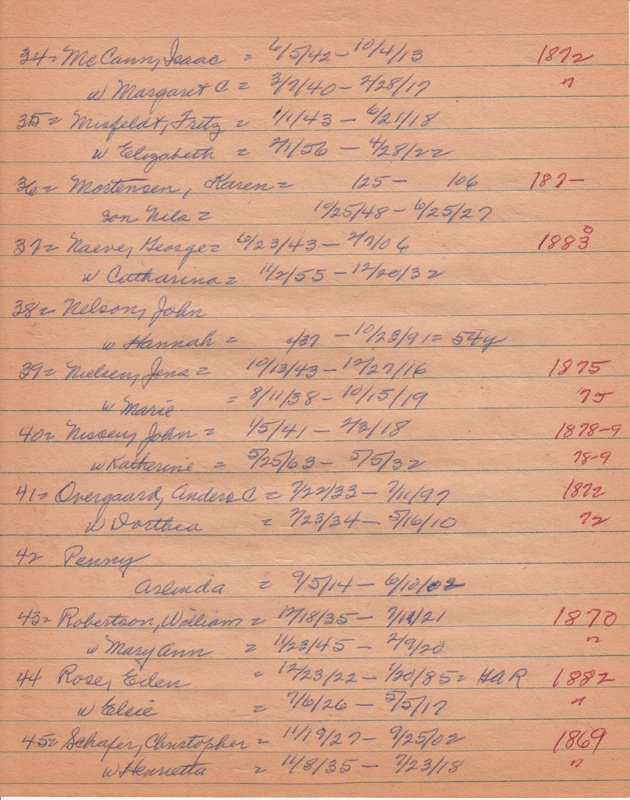 34= McCann, Isaac = 6/5/42 - 10/4/13 1872
w Margaret C = 3/7/40 - 2/28/17 "
35= Misfeldt, Fritz = 1/1/43 - 6/21/18
w Elizabeth = 2/1/56 - 4/28/22
36= Mortensen, Karen = 125 - 106 187-
son Nils = 10/25/48 - 6/25/27
37= Naeve, George = 6/23/43 - 2/7/06 1883
w Catharina = 11/2/55 - 12/20/32
38= Nelson, John
w Hannah = /37 - 10/23/91 = 54y
39= Nielsen, Jens = 10/13/43 - 12/27/16 1875
w Marie = 8/11/38 - 10/15/19 75
40= Nissen, John = 1/5/41 - 2/3/18 1878-9
w Katherine = 5/25/63 - 5/5/32 78-9
41= Overgaard, Anders C = 7/22/33 - 7/11/97 1872
w Dorthea = 7/23/34 - 5/16/10 72
42 Penny
Arlinda = 9/5/14 - 6/10/02
43= Robertson, William = 12/18/35 - /21 1870
w Mary Ann = 11/23/45 - 2/9/20 "
44 Rose, Eden = 12/23/22 - 1/20/85 = GAR 1882
w Elsie = 7/6/26 - 5/5/17 "
45= Schafer, Christopher = 11/19/27 - 9/25/02 1869
w Henrietta = 11/8/35 - 7/23/18 "